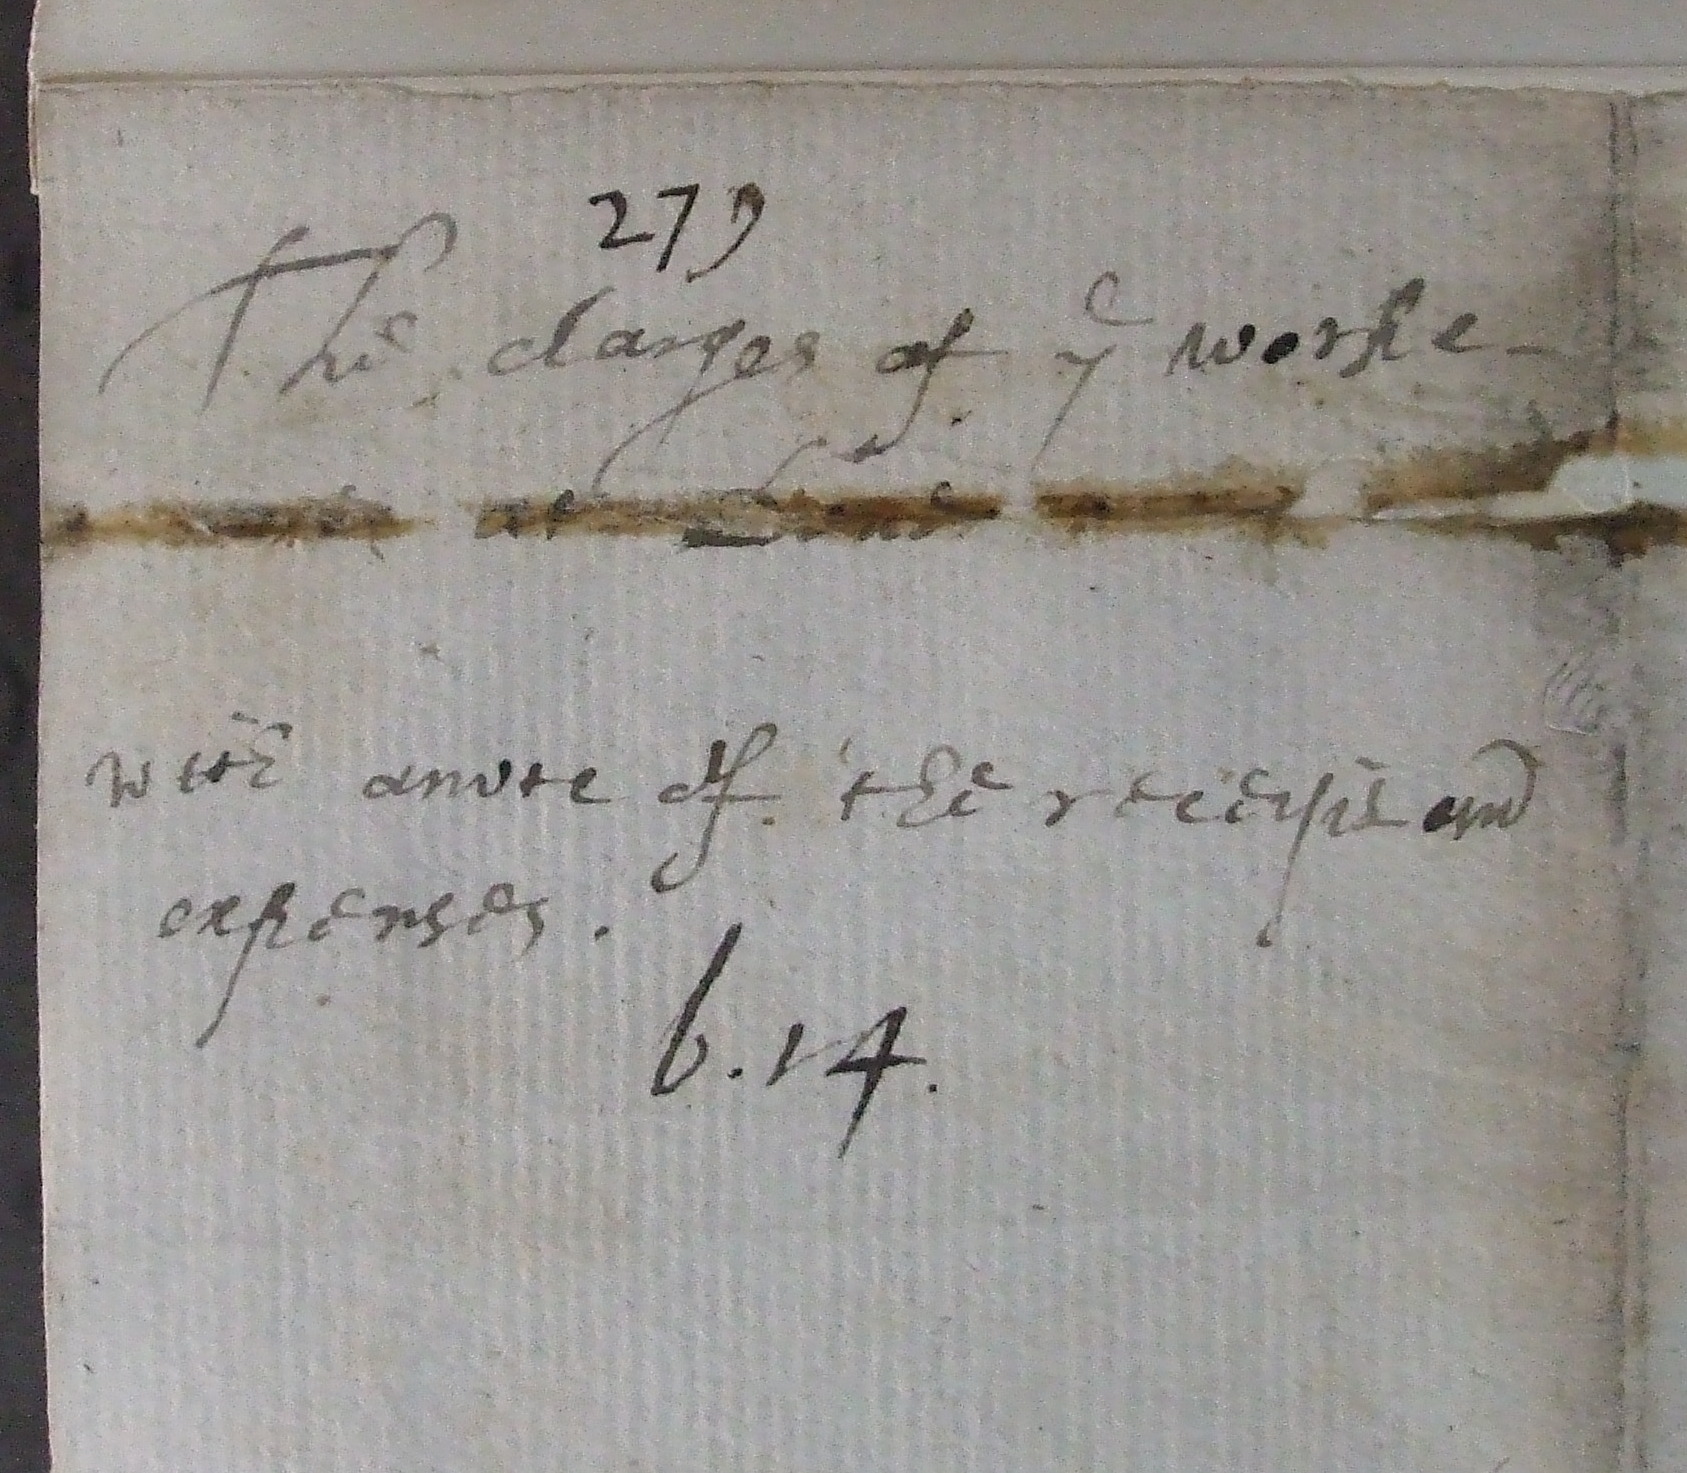 279
The charges of ye worke
at
with anote of the receipts and
expenses.
6.14.